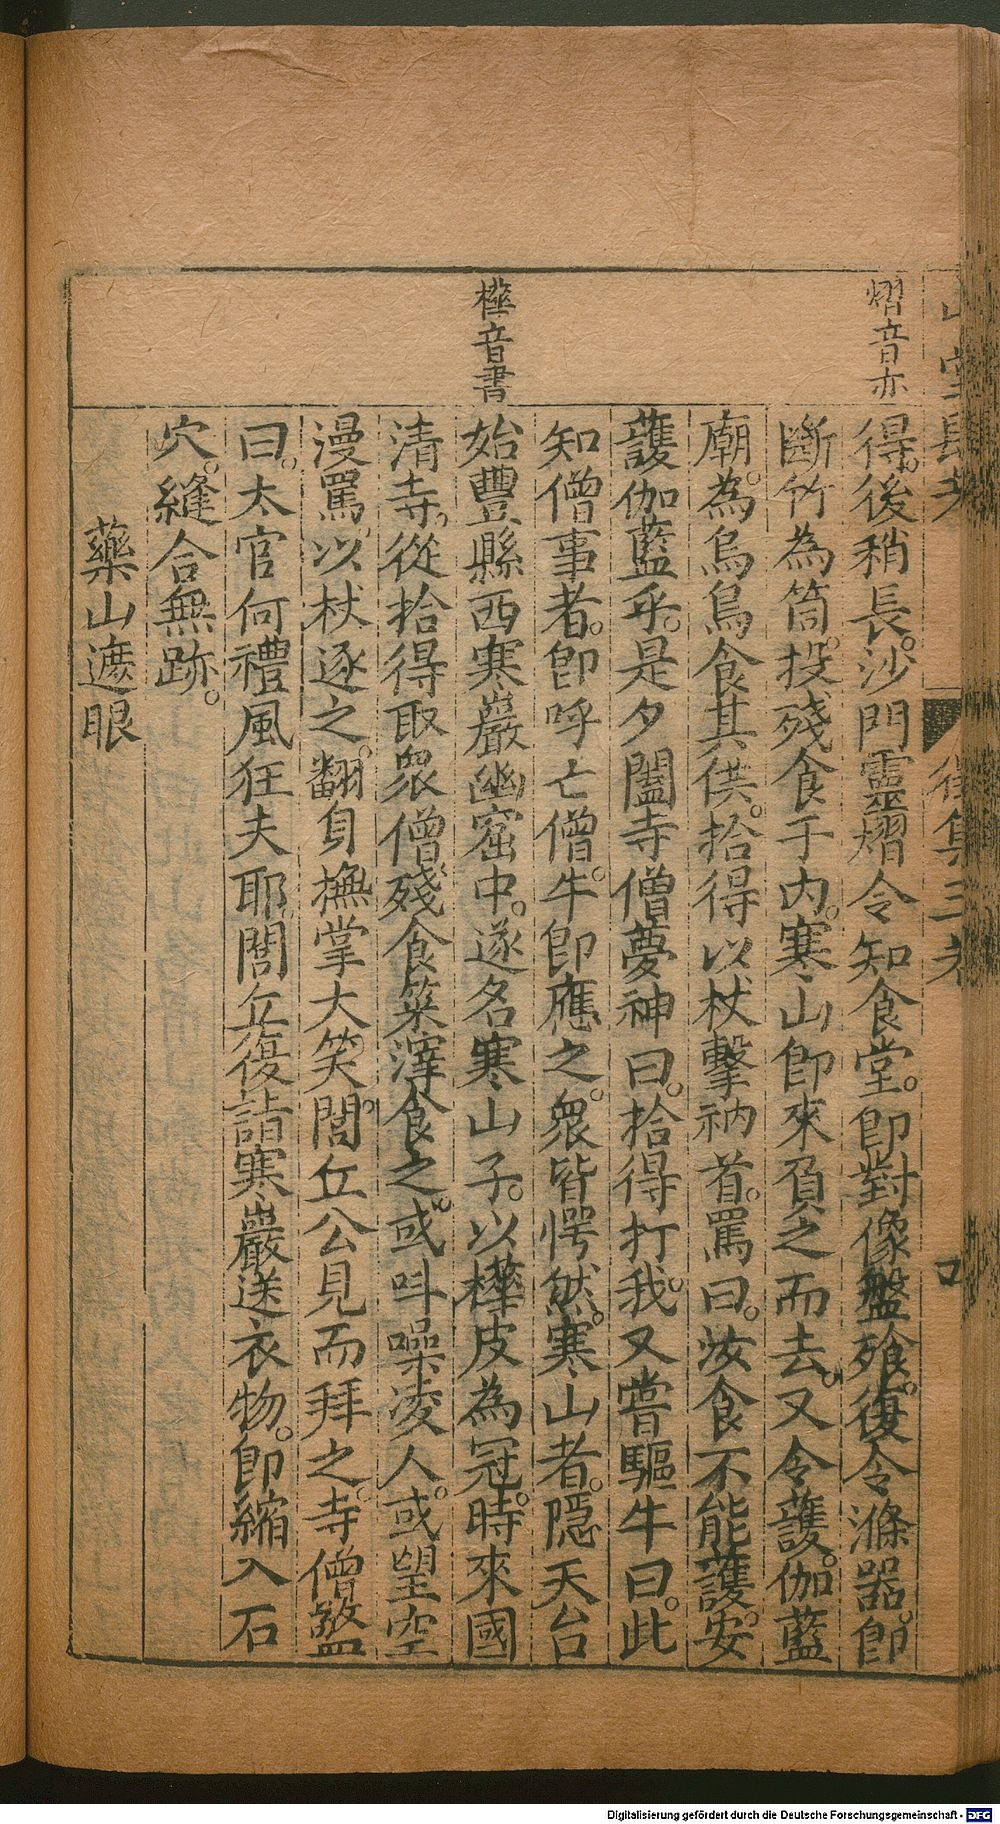 熠音亦
樺音書
得。後稍長。沙門靈熠令知食堂。即對像盤飱。復令滌器。即
斷竹為筒。投殘食于内。寒山即來負之而去。又令護。伽藍
廟。為烏鳥食其供。拾得以杖擊衲首。罵曰。汝食不能護。安
護伽藍乎。是夕闔寺僧夢神曰。拾得打我。又嘗驅牛曰。此
知僧事者。即呼亡僧。牛即應之。衆皆愕然。寒山者。隠天台
始豐縣西寒巖幽窟中。遂名寒山子。以樺皮為冠。時來國
清寺。從拾得取衆僧殘食菜滓食之。或呌噪凌人。或望空
漫罵。以杖逐之。翻身撫掌大笑。閭丘公見而拜之。寺僧盤
曰。太官何禮風狂夫耶。閭丘復詣寒巖送衣物。即縮入石
穴。縫合無跡。
藥山遮眼
Digitalisierung gefördert durch die Deutsche Forschungsgemeinschaft - DFG